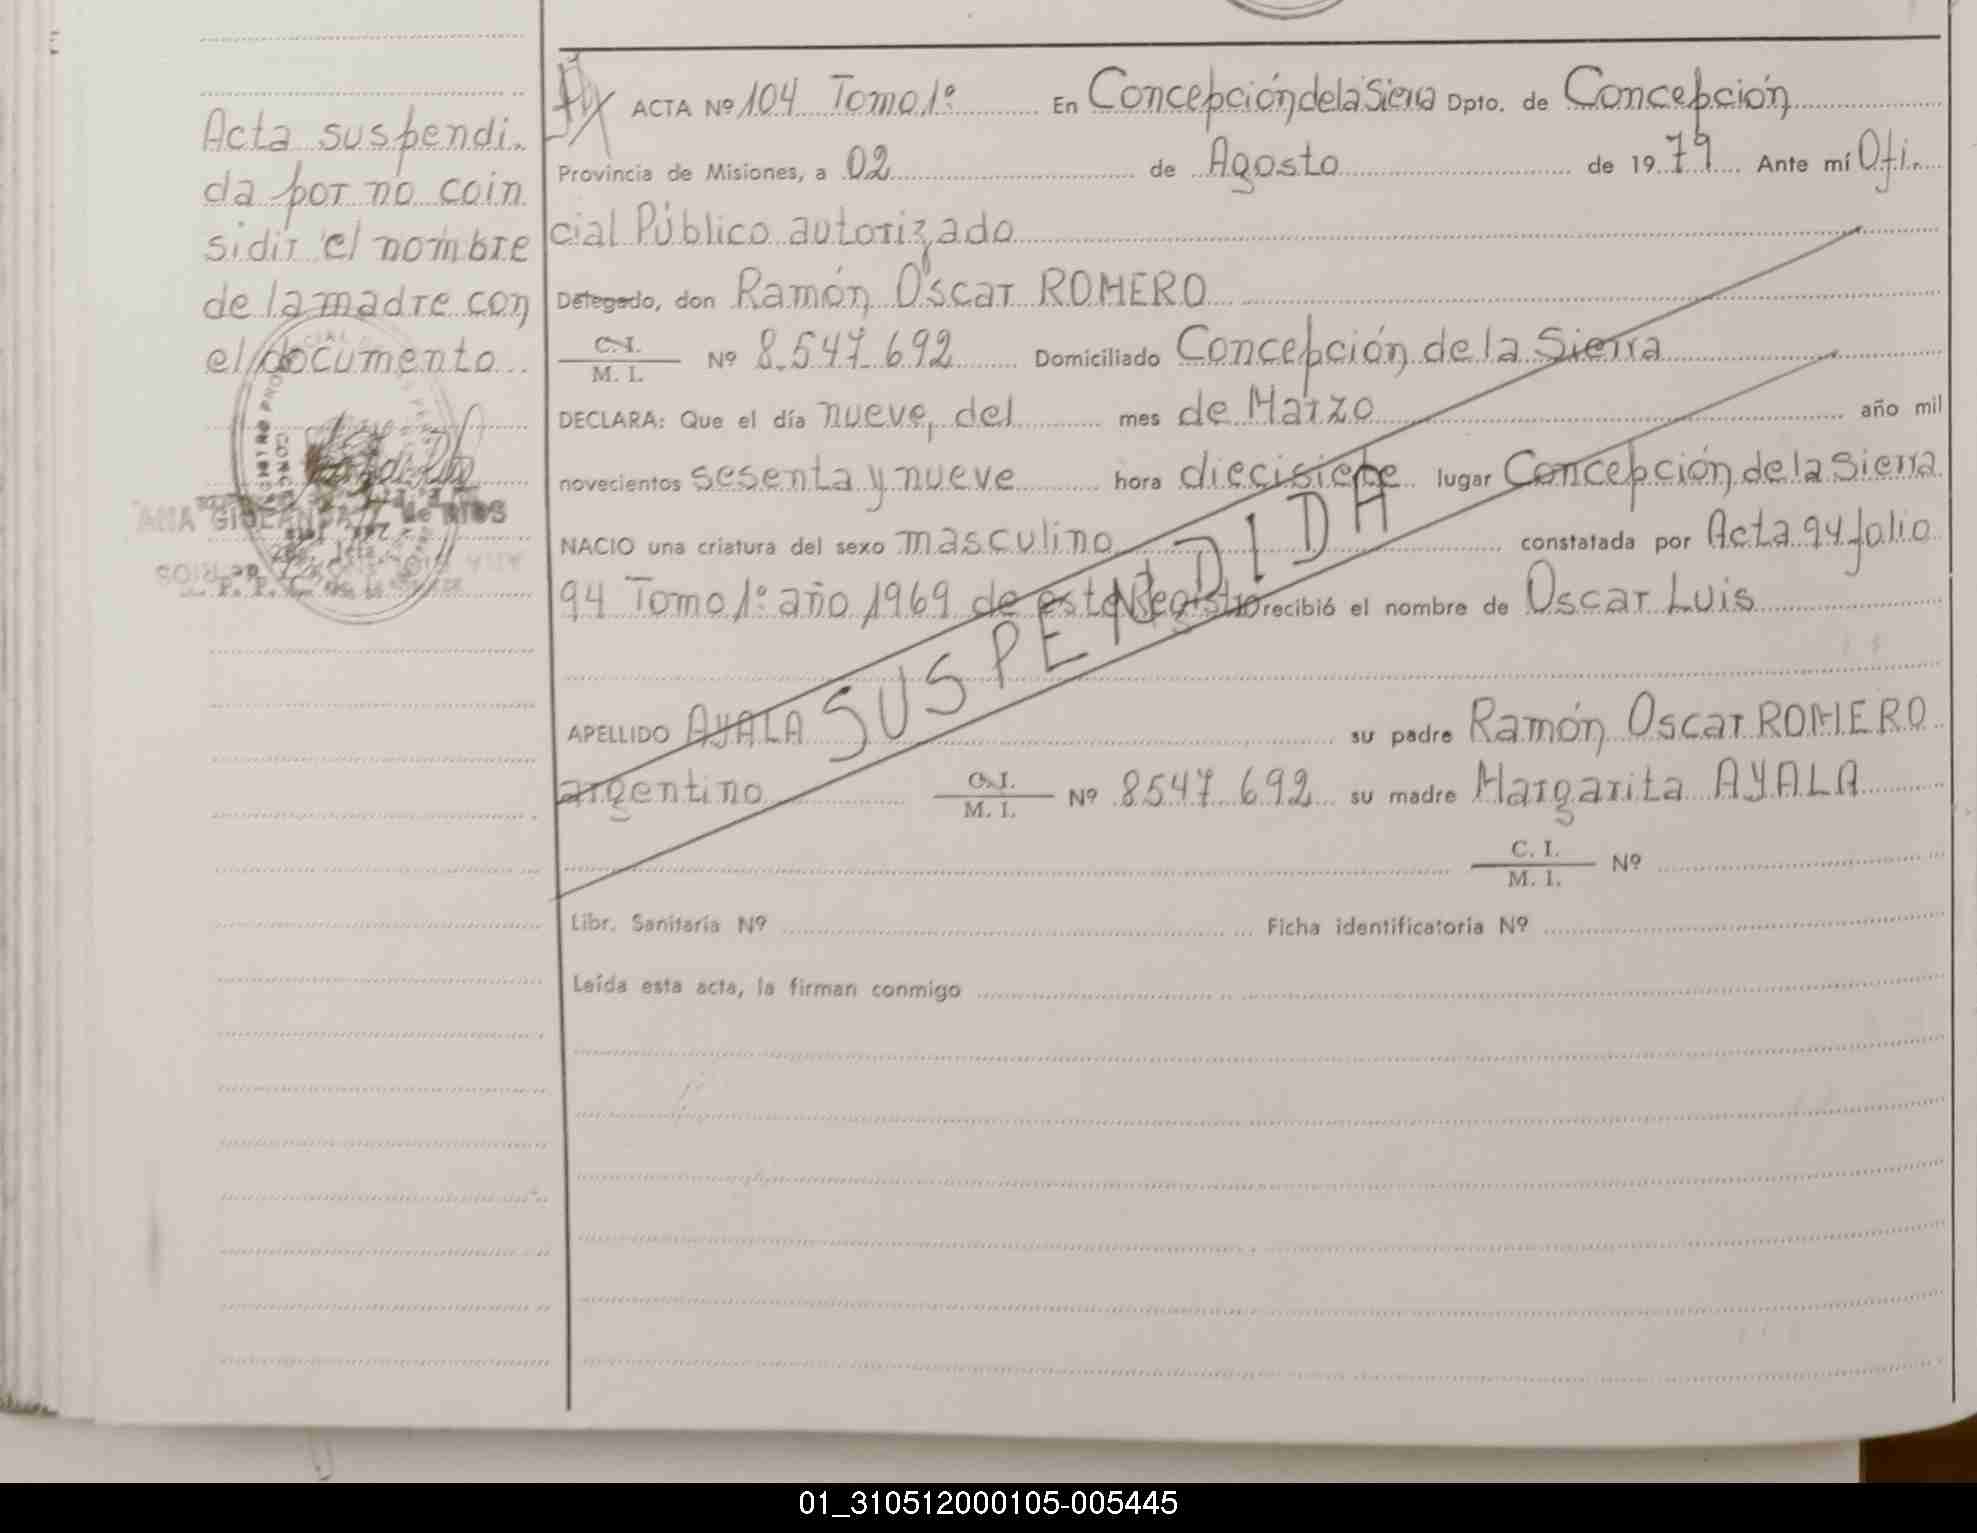 Acta suspendi.
da por no coin
sidir el nombre
de la madre con
el documento
ACTA Nº 104 Tomo 1º En Concepción de la Sierra Dpto. de Concepción
Provincia de Misiones, a 02 de Agosto de 1979 Ante mí Ofi.
cial Público autorizado
Delegado, don Ramón Oscar ROMERO
C. I.
M. I. Nº 8.547.692 Domiciliado Concepción de la Sierra
DECLARA: Que el día nueve, del mes de Marzo año mil
novecientos sesenta y nueve hora diecisiete lugar Concepción de la Sierra
NACIO una criatura del sexo masculino constatada por Acta 94 folio
94 Tomo 1º año 1969 de este Registro recibió el nombre de Oscar Luis
SUSPENDIDA
APELLIDO AYALA su padre Ramón Oscar ROMERO
argentino C. I.
M. I. Nº 8547.692 su madre Margarita AYALA
C. I.
M. I. Nº
Libr. Sanitaria Nº Ficha identificatoria Nº
Leída esta acta, la firman conmigo
01_310512000105-005445